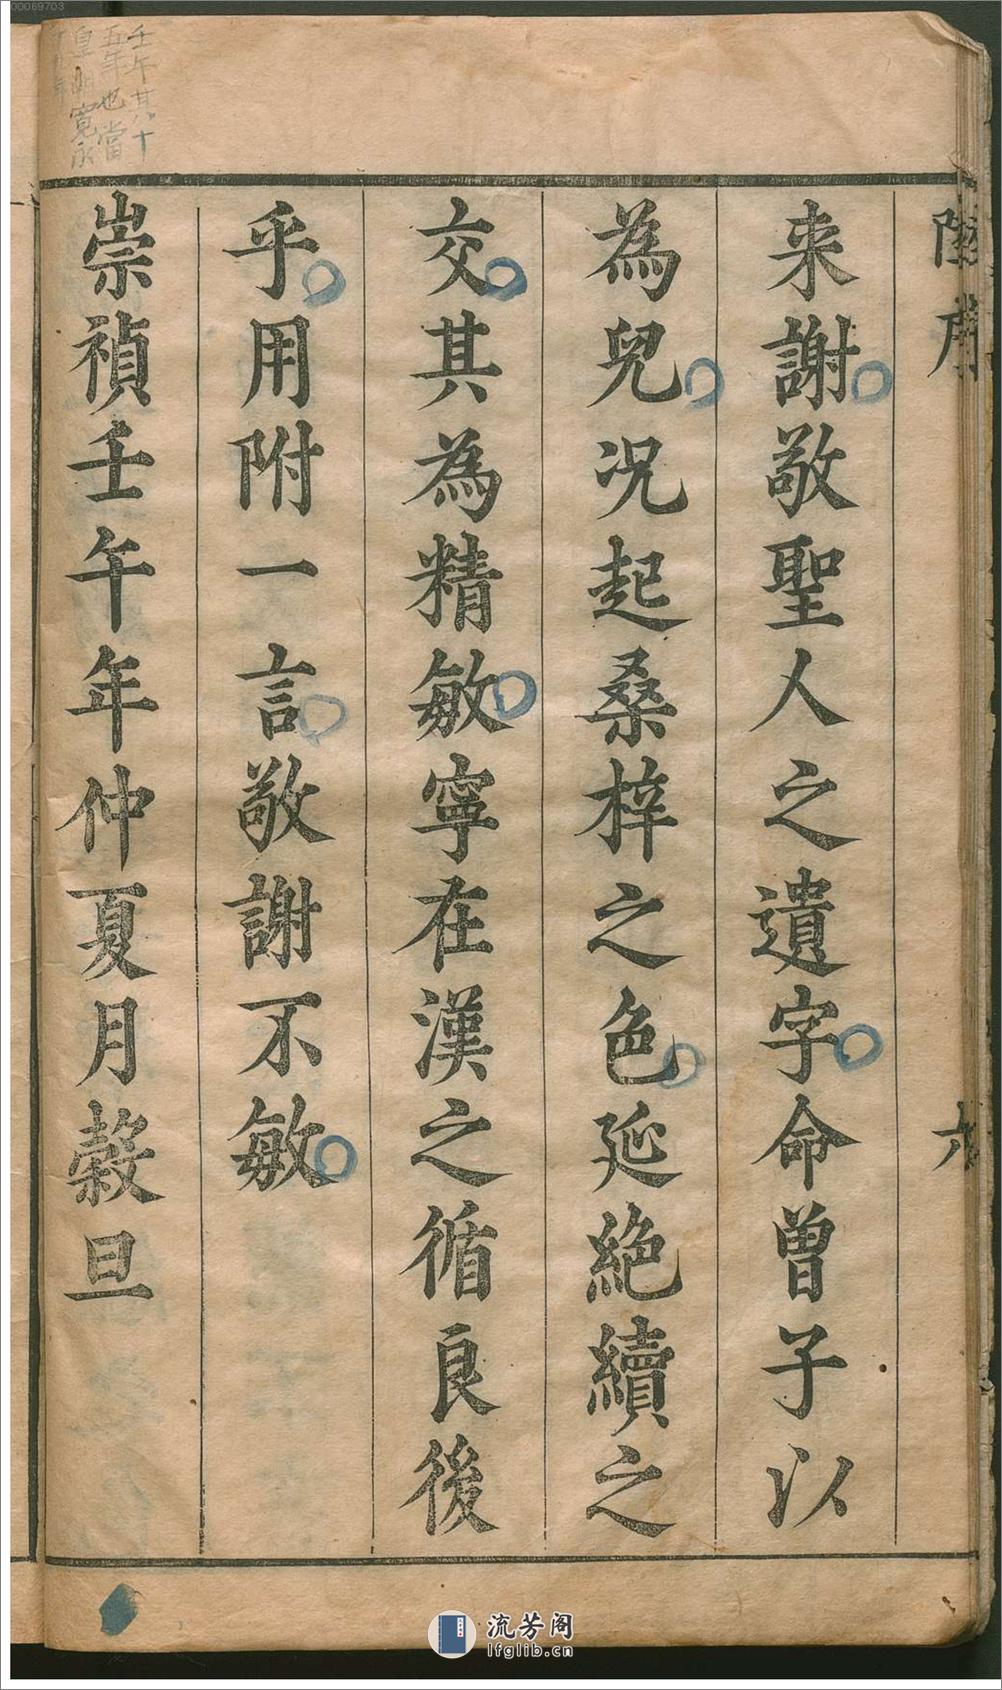 來謝敬聖人之遺字命曾子以
為皃况起桑梓之色延絶續之
交其為精敏寧在漢之循良後
乎用附一言敬謝不敏
崇禎壬午年仲夏月穀旦
六
壬午其十
五年也當
皇明寛永
流芳阁
lfglib.cn
00069703